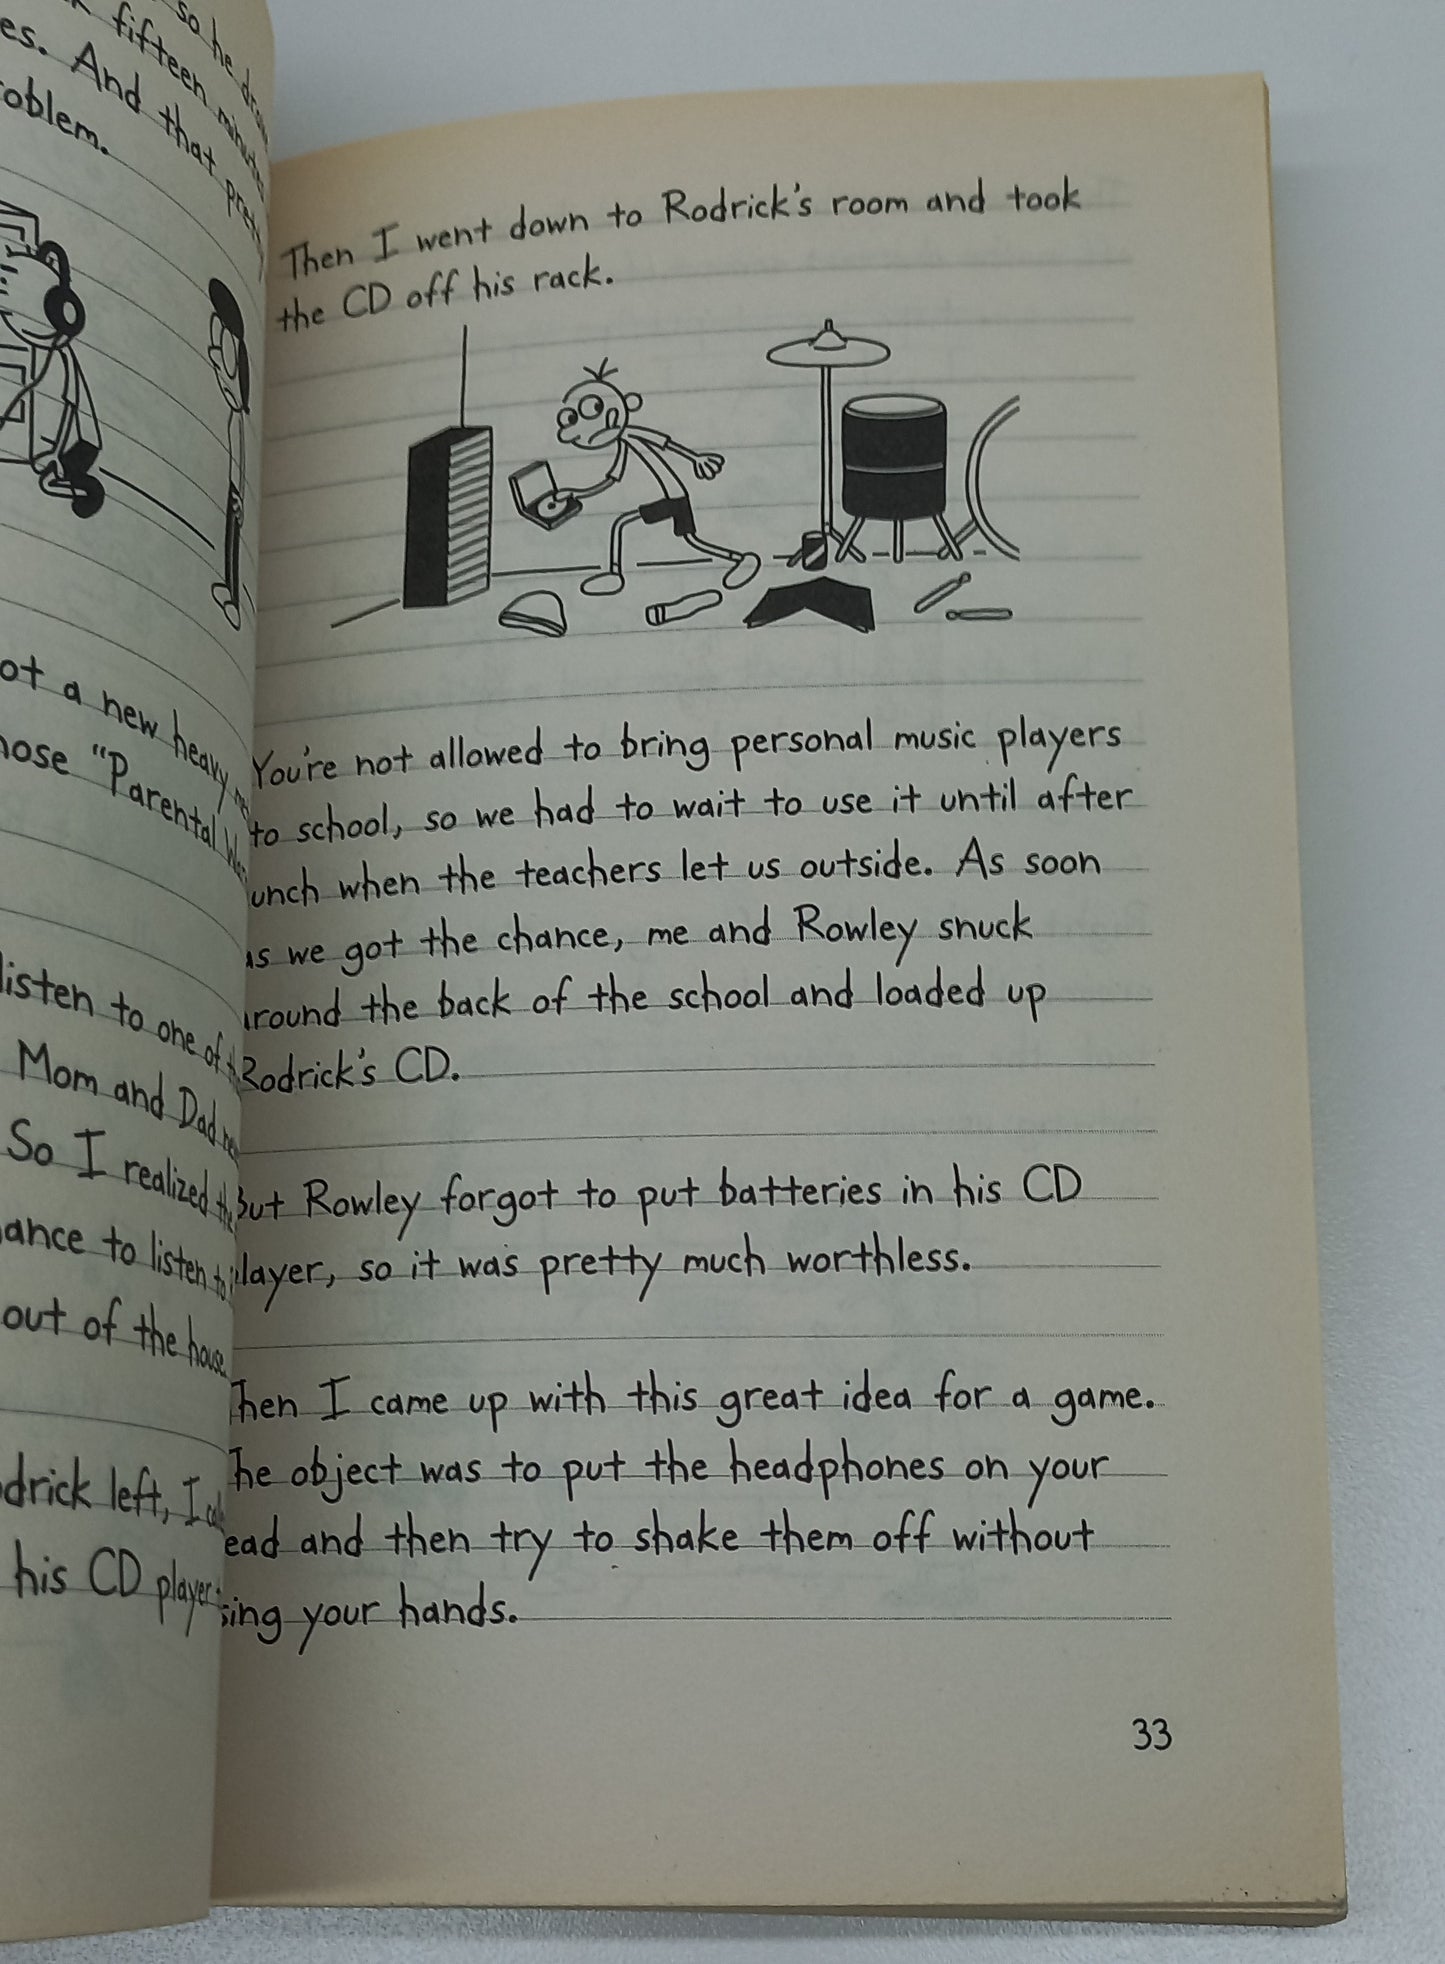 so he
fifteen
es. And that
oblem.
ot a new heavy
hose "Parental
listen to one of
Mom and Dad
So I realized
ance to listen
out of the house.
drick left, I
his CD player
Then I went down to Rodrick's room and took
the CD off his rack.
You're not allowed to bring personal music players
to school, so we had to wait to use it until after
unch when the teachers let us outside. As soon
as we got the chance, me and Rowley snuck
around the back of the school and loaded up
Rodrick's CD.
But Rowley forgot to put batteries in his CD
player, so it was pretty much worthless.
Then I came up with this great idea for a game.
The object was to put the headphones on your
ead and then try to shake them off without
sing your hands.
33